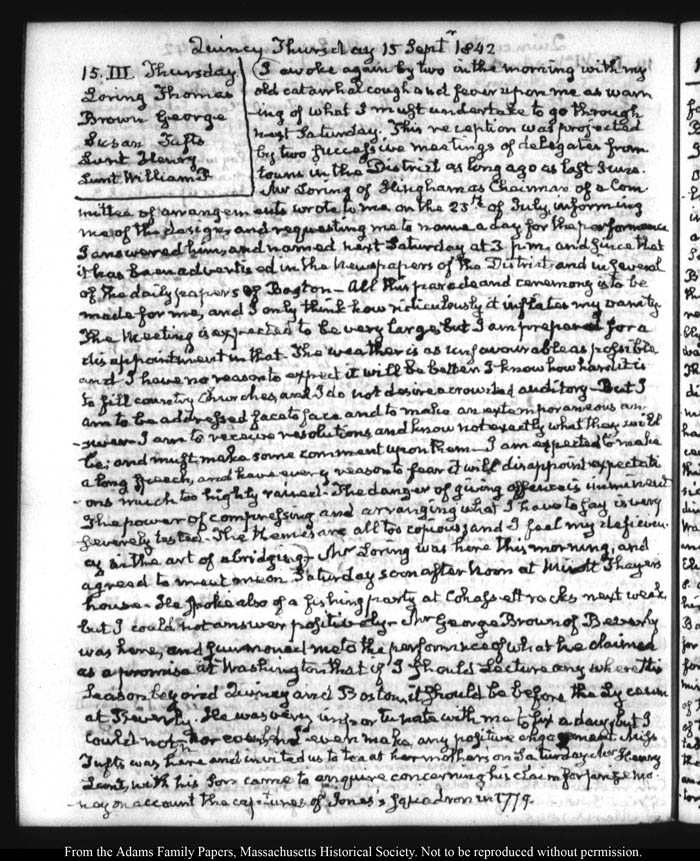 Quincy Thursday 15 Septr 1842
15. III Thursday
Loring Thomas
Brown George
Susan Tufts
Lunt Henry
Lunt William P.
I awoke again by two in the morning with my
old catarrhal cough and fever upon me as warn
ing of what I must undertake to go through
next Saturday. This reception was projected
by two successive meetings of delegates from
towns in the District as long ago as last June.
Mr Loring of Hingham as Chairman of a Com
mittee of arrangements wrote to me on the 23d of July, informing
me of the design, and requesting me to name a day for the performance
I answered him, and named next Saturday at 3 p.m. and since that
it has been advertised in the Newspapers of the District and in several
of the daily papers of Boston— All this parade and ceremony is to be
made for me, and I only think how ridiculously it inflates my vanity
The Meeting is expected to be very large, but I am prepared for a
disappointment in that. The weather is as unfavourable as possible
and I have no reason to expect it will be better. I know how hard it is
to fill country Churches, and I do not desire a crowded auditory— But I
am to be addressed face to face and to make an extemporaneous an
-swer— I am to receive resolutions, and know not exactly what they will
be; and must make some comment upon them— I am expected to make
a long speech, and have every reason to fear it will disappoint expectati
-ons much too highly raised— The danger of giving offence is imminent
The power of compressing and arranging what I have to say is very
severely tested— The themes are all too copious, and I feel my deficien
cy in the art of abridging— Mr Loring was here this morning, and
agreed to meet me on Saturday soon after Noon at Minott Thayer's
house— He spoke also of a fishing party at Cohassett rocks next week,
but I could not answer positively— Mr George Brown of Beverly
was here, and summoned me to the performance of what he claimed
as a promise at Washington, that if I should Lecture any where this
season beyond Quincy and Boston, it should be before the Lyceum
at Beverly. He was very importunate with me to fix a day, but I
could not, nor could I even make any positive engagement Miss
Tufts was here and invited us to tea at her mothers on Saturday. Mr Henry
Lunt, with his Son came to enquire concerning his claim for prize mo
-ney on account the captures of Jones's Squadron in 1779.
From the Adams Family Papers, Massachusetts Historical Society. Not to be reproduced without permission.